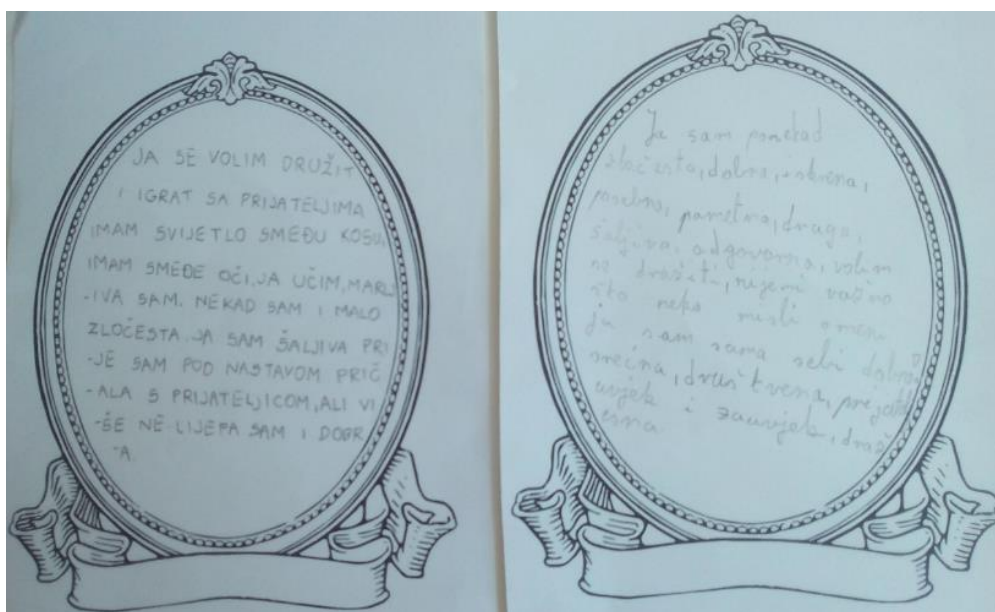 JA SE VOLIM DRUŽIT
I IGRAT SA PRIJATELJIMA
IMAM SVIJETLO SMEĐU KOSU,
IMAM SMEĐE OČI, JA UČIM, MARLJ
-IVA SAM. NEKAD SAM I MALO
ZLOČESTA. JA SAM ŠALJIVA PRI
-JE SAM POD NASTAVOM PRIČ
-ALA S PRIJATELJICOM, ALI VI
-ŠE NE LIJEPA SAM I DOBR
-A.
Ja sam ponekad
zločesta, dobra, iskrena,
posebna, pametna, druga,
šaljiva, odgovorna, volim
družiti, nije mi važno
što neko misli o meni
ja sam sama sebi dobra,
srećna, društvena,
uvjek i zauvjek,